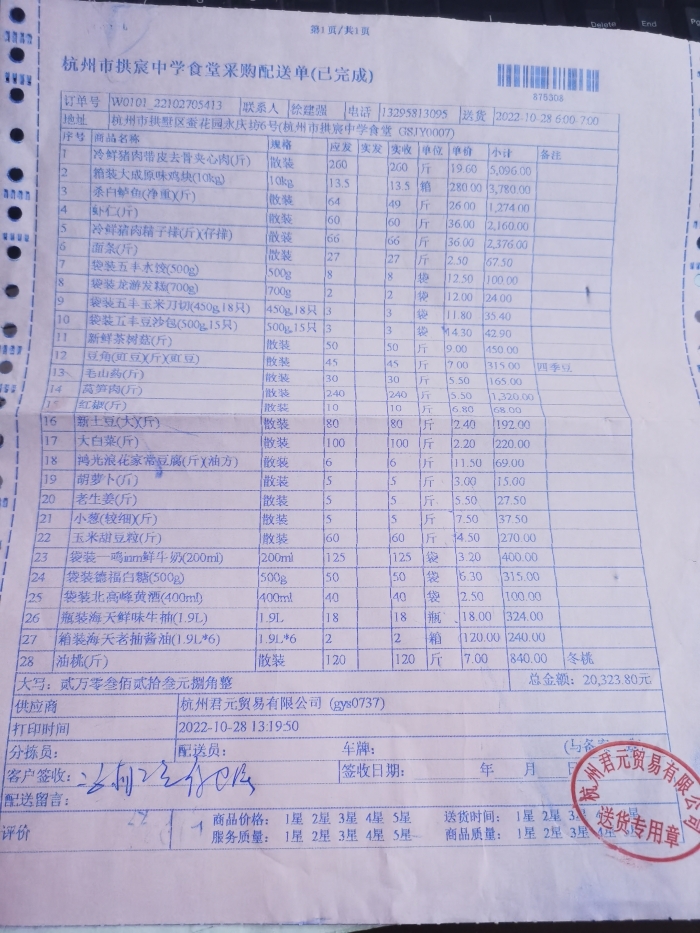 Delete End
第1页/共1页
杭州市拱宸中学食堂采购配送单(已完成)
875308
订单号 W0101_22102705413 联系人 徐建强 电话 13295813095 送货 2022-10-28 6:00-7:00
地址 杭州市拱墅区蚕花园永庆坊6号(杭州市拱宸中学食堂 GSJY0007)
序号 商品名称 规格 应发 实发 实收 单位 单价 小计 备注
1 冷鲜猪肉带皮去骨夹心肉(斤) 散装 260 260 斤 19.60 5,096.00
2 箱装大成原味鸡块(10kg) 10kg 13.5 13.5 箱 280.00 3,780.00
3 杀白鲈鱼(净重)(斤) 散装 64 49 斤 26.00 1,274.00
4 虾仁(斤) 散装 60 60 斤 36.00 2,160.00
5 冷鲜猪肉精子排(斤)(仔排) 散装 66 66 斤 36.00 2,376.00
6 面条(斤) 散装 27 27 斤 2.50 67.50
7 袋装五丰水饺(500g) 500g 8 8 袋 12.50 100.00
8 袋装龙游发糕(700g) 700g 2 2 袋 12.00 24.00
9 袋装五丰玉米刀切(450g,18只) 450g,18只 3 3 袋 11.80 35.40
10 袋装五丰豆沙包(500g,15只) 500g,15只 3 3 袋 14.30 42.90
11 新鲜茶树菇(斤) 散装 50 50 斤 9.00 450.00
12 豆角(豇豆)(斤)(豇豆) 散装 45 45 斤 7.00 315.00 四季豆
13 毛山药(斤) 散装 30 30 斤 5.50 165.00
14 莴笋肉(斤) 散装 240 240 斤 5.50 1,320.00
15 红椒(斤) 散装 10 10 斤 6.80 68.00
16 新土豆(大)(斤) 散装 80 80 斤 2.40 192.00
17 大白菜(斤) 散装 100 100 斤 2.20 220.00
18 鸿光浪花家常豆腐(斤)(油方) 散装 6 6 斤 11.50 69.00
19 胡萝卜(斤) 散装 5 5 斤 3.00 15.00
20 老生姜(斤) 散装 5 5 斤 5.50 27.50
21 小葱(较细)(斤) 散装 5 5 斤 7.50 37.50
22 玉米甜豆粒(斤) 散装 60 60 斤 4.50 270.00
23 袋装一鸣inm鲜牛奶(200ml) 200ml 125 125 袋 3.20 400.00
24 袋装德福白糖(500g) 500g 50 50 袋 6.30 315.00
25 袋装北高峰黄酒(400ml) 400ml 40 40 袋 2.50 100.00
26 瓶装海天鲜味生抽(1.9L) 1.9L 18 18 瓶 18.00 324.00
27 箱装海天老抽酱油(1.9L*6) 1.9L*6 2 2 箱 120.00 240.00
28 油桃(斤) 散装 120 120 斤 7.00 840.00 冬桃
大写：贰万零叁佰贰拾叁元捌角整 总金额：20,323.80元
供应商 杭州君元贸易有限公司 (gys0737)
打印时间 2022-10-28 13:19:50
分拣员： 配送员： 车牌：
客户签收： 签收日期： 年 月 日
配送留言：
评价 商品价格： 1星 2星 3星 4星 5星 送货时间： 1星 2星 3星
服务质量： 1星 2星 3星 4星 5星 商品质量： 1星 2星 3星 4星
杭州君元贸易有限公司
送货专用章